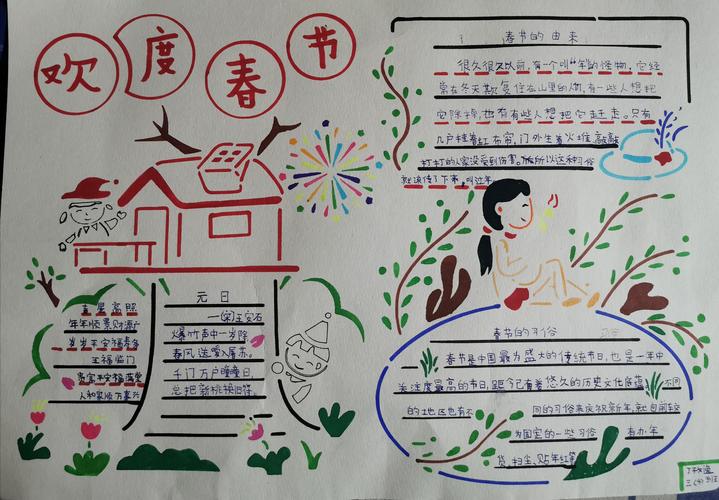 欢度春节
春节的由来
很久很久以前,有一个叫"年"的怪物,它经
常在冬天欺负住在山里的人们,有一些人想把
它除掉,也有有些人想把它赶走。只有
几户挂着红布帘,门外生着火堆敲敲
打打的人家没受到伤害。所以这种习俗
就流传了下来,叫过年
元日
—(宋)王安石
爆竹声中一岁除
春风送暖入屠苏。
千门万户曈曈日,
总把新桃换旧符。
吉星高照
年年顺景财源广
岁岁平安福寿多
五福临门
人和家顺万事兴
春节的习俗
春节是中国最为盛大的传统节日,也是一年中
关注度最高的节日,距今已有着悠久的历史文化底蕴
不同
的地区也有不
同的习俗来庆祝新年,就目前较
为固定的一些习俗
有办年
货,扫尘、贴年红等
三(4)班